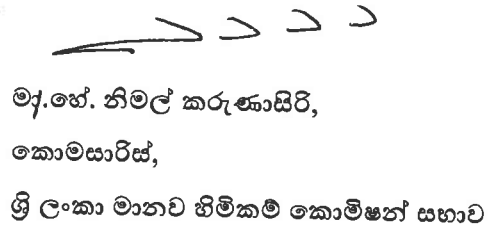 මා.හේ. නිමල් කරුණාසිරි,
කොමසාරිස්,
ශ්‍රී ලංකා මානව හිමිකම් කොමිෂන් සභාව